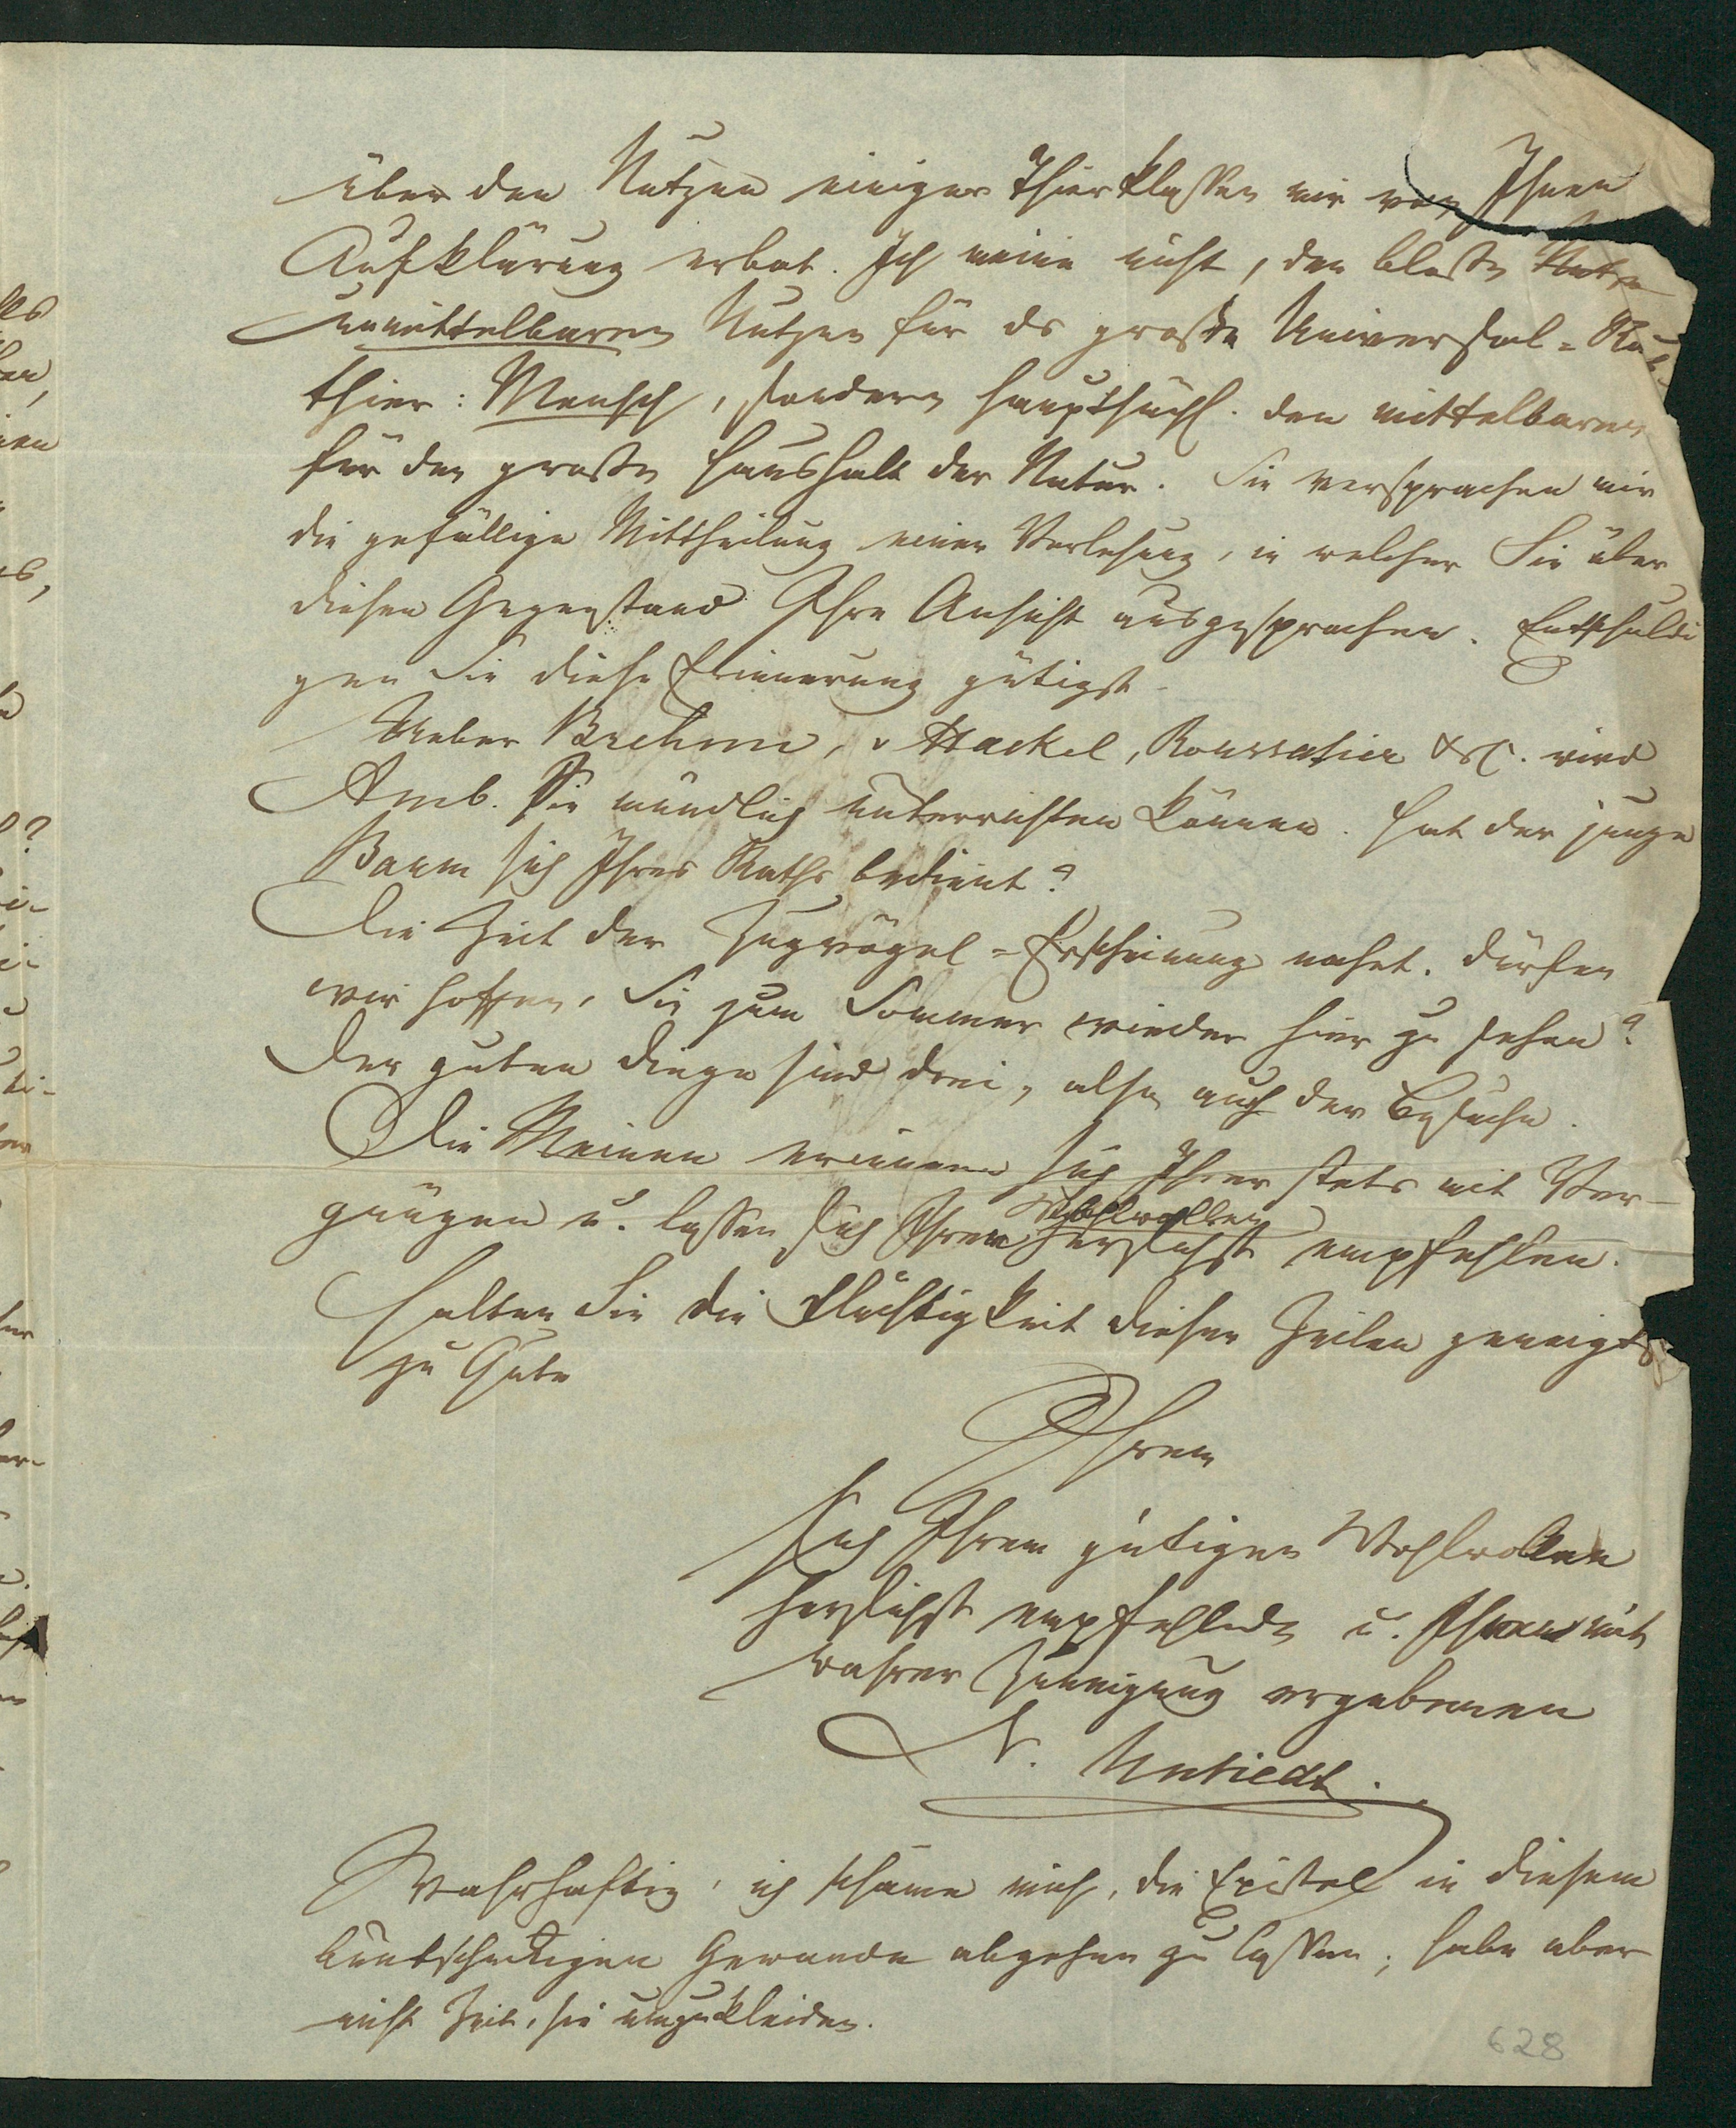 über den Nutzen einiger Thierklassen mir von Ihnen
Aufklärung erbat. Ich meine nicht, den bloßen
unmittelbaren Nutzen für das große Universal-
thier: Mensch, sondern hauptsächl. den mittelbaren
für den großen Haushalt der Natur. Sie versprachen mir
die gefällige Mittheilung einer Vorlesung, in welcher Sie über
diesen Gegenstand Ihre Ansicht ausgesprochen. Entschuldi
gen Sie diese Erinnerung gütigst.
Ueber Brehm, v Hackel, &c. wird
Amb. Sie mündlich unterrichten können. Hat der junge
Baum sich Ihres Raths bedient?
Die Zeit der Zugvögel-Erscheinung nahet. Dürfen
wir hoffen, Sie zum Sommer wieder hier zu sehen?
Der guten Dinge sind drei, also auch der Besuche.
Die Meinen erinnern sich Ihrer stets mit Ver-
gnügen u. lassen sich Ihrem Wohlwollen herzlichst empfehlen.
Halten Sie die Flüchtigkeit dieser Zeilen geneigtest
zu Gute
Ihrem
sich Ihrem gütigen Wohlwollen
herzlichst empfehlenden u. Ihnen mit
wahrer Zuneigung ergebenen
N. Untiedt.
Wahrhaftig, ich schäme mich, die Epistel in diesem
buntscheckigen Gewande abgehen zu lassen; habe aber
nicht Zeit, sie umzukleiden.
628